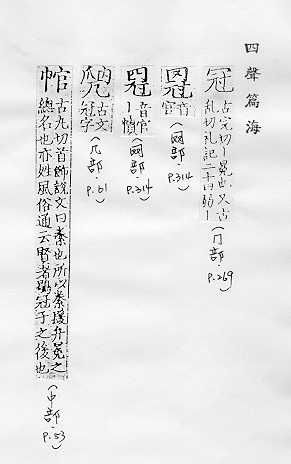 四聲篇海
冠
古完切冕也又古
乱切礼記二十弱丨
(冖部 P.269)
音
官
(網部 P.314)
音官
丨幘
(網部 P.314)
古文
冠字
(几部 P.61)
古丸切首飾說文曰絭也所以絭援弁冕之
總名也亦姓風俗通云賢者鶡冠子之後也
(巾部 P.53)